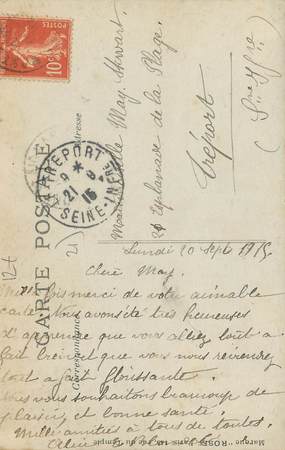 CARTE POSTALE
Correspondance
Adresse
POSTES
10c
TREPORT
21 9
15
SEINE-INFRE
Mademoiselle May. Stewart.
Esplanade de la Plage.
Tréport
(Sne Ifre)
Lundi 20 Sept 1915.
Chère May.
Mille fois merci de votre aimable
carte. Nous avons été très heureuses
d'apprendre que vous alliez tout à
fait bien et que vous nous reviendrez
tout à fait florissante.
Nous vous souhaitons beaucoup de
plaisir et bonne santé.
Mille amitiés à tous de toutes.
Marque "ROSE" Paris, 146, du Temple